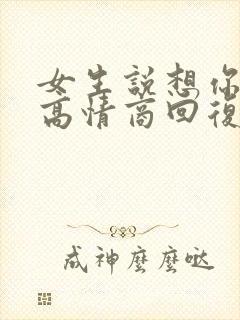 女生說想你
高情商回復
成神麼麼噠